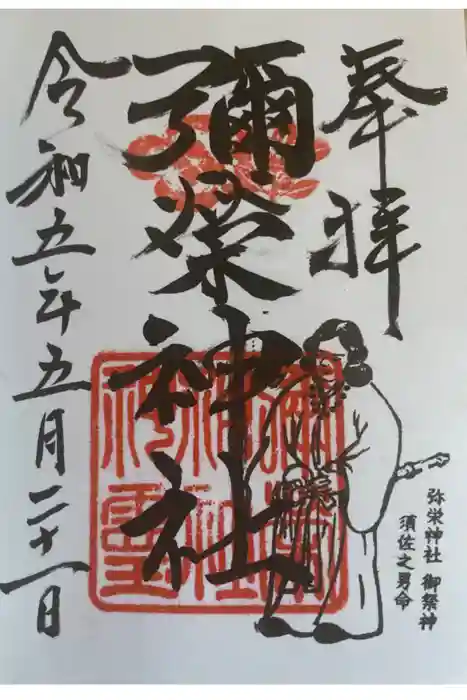 奉拝
彌榮神社
令和五年五月二十一日
弥栄神社 御祭神
須佐之男命